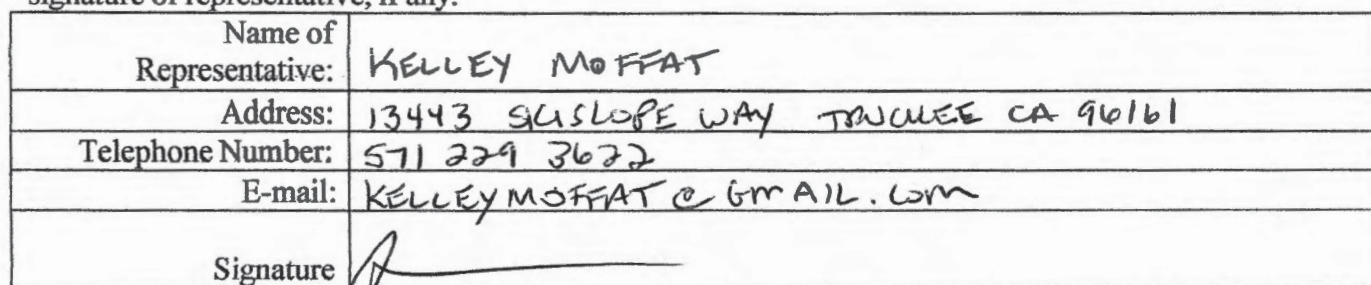 signature of representative, if any.
Name of
Representative: KELLEY MOFFAT
Address: 13443 SKISLOPE WAY TRUCKEE CA 96161
Telephone Number: 571 229 3622
E-mail: KELLEYMOFFAT@GMAIL.COM
Signature